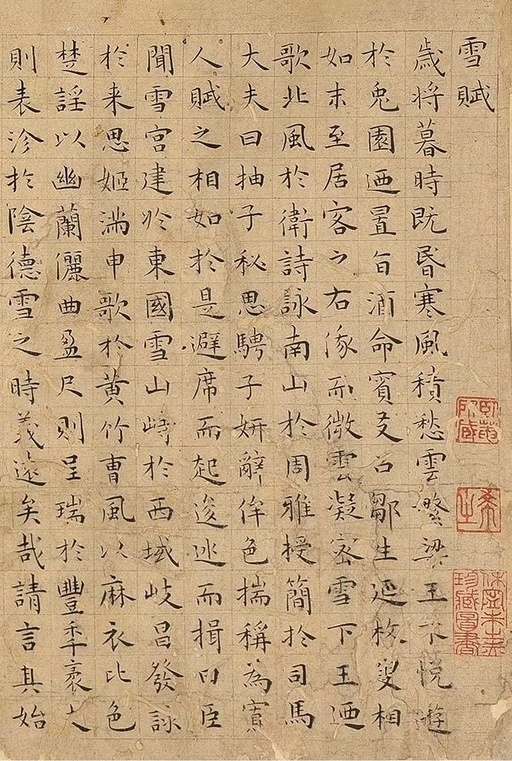 雪賦
歲將暮時既昏寒風積愁雲繁梁王不悅遊
於兔園迺置旨酒命賓友召鄒生延枚叟相
如末至居客之右俄而微雲凝密雪下王迺
歌北風於衛詩詠南山於周雅授簡於司馬
大夫曰抽子秘思騁子妍辭侔色揣稱為寡
人賦之相如於是避席而起逡巡而揖曰臣
聞雪宮建於東國雪山峙於西域岐昌發詠
於来思姬滿申歌於黃竹曹風以麻衣比色
楚謡以幽蘭儷曲盈尺則呈瑞於豐年袤丈
則表沴於陰德雪之時義遠矣哉請言其始
卧菴所藏
休寧朱之赤珍藏圖書